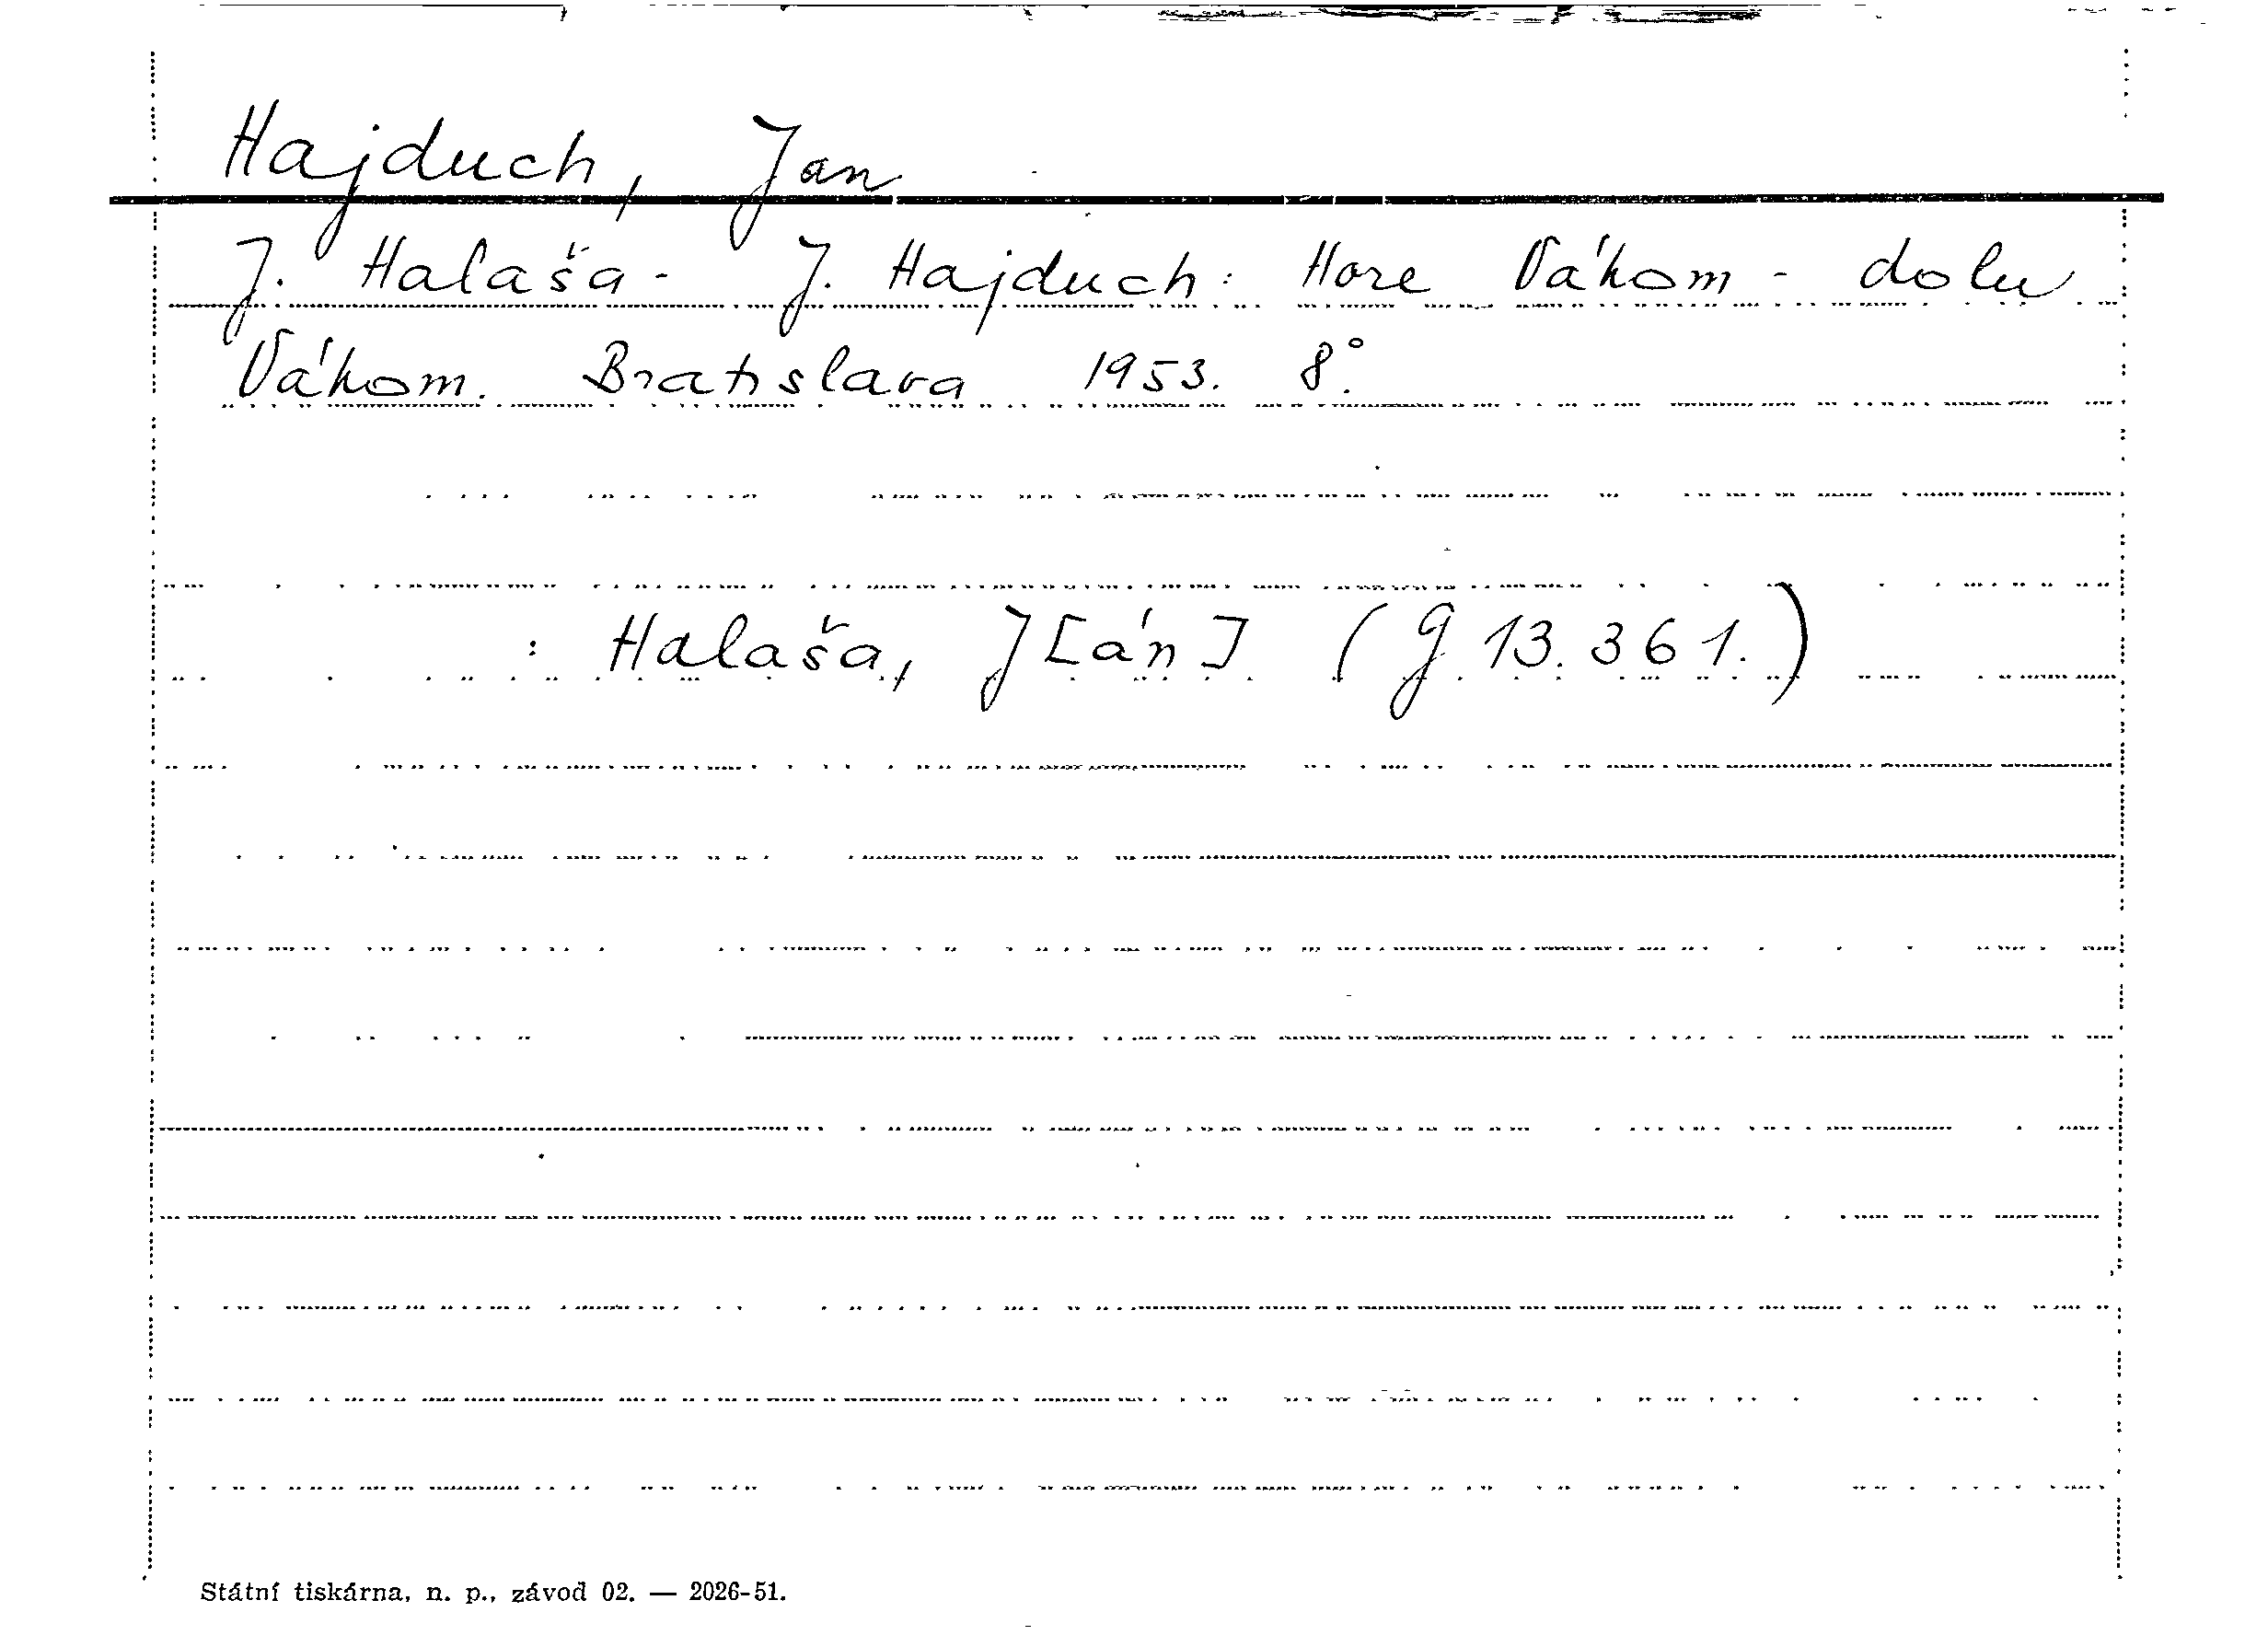 Hajduch, Jan
J. Halaša - J. Hajduch: Hore Váhom - dolu
Váhom. Bratislava 1953. 8°.
: Halaša, J[án] (G 13.361.)
Státní tiskárna, n. p., závod 02. — 2026-51.